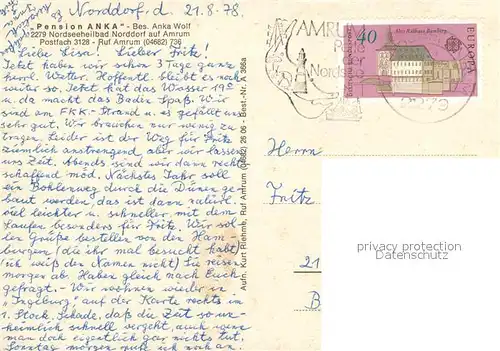 Norddorf, d. 21.8.78.
"Pension ANKA" - Bes. Anka Wolf
2279 Nordseeheilbad Norddorf auf Amrum
Postfach 3128 - Ruf Amrum (04682) 736
Liebe Lisa! Lieber Fritz!
Jetzt haben wir schon 3 Tage ganz
herrl. Wetter. Hoffentl. bleibt es noch
weiter so. Jetzt hat das Wasser 19°
u. da macht das Baden Spaß. Wir
sind am FKK.-Strand u. es gefällt uns
sehr gut. Wir brauchen nur wenig zu
tragen. Leider ist der Weg für Fritz
ziemlich anstrengend aber wir lassen
uns Zeit. Abends sind wir dann recht-
schaffend müd. Nächstes Jahr soll
ein Bohlenweg durch die Dünen ge-
baut werden, das ist dann natürl.
viel leichter u. schneller, mit dem
Laufen besonders für Fritz. Wir sol-
len Grüße bestellen von den Ham-
burgern (die ihr mal besucht habt)
ich weiß den Namen nicht) Sie reisen
morgen ab. Haben gleich nach Euch
gefragt. - Wir wohnen wieder in
"Ingeburg" auf der Karte rechts im
1. Stock. Schade, daß die Zeit so un-
heimlich schnell vergeht, auch wenn
man doch eigentlich gar nichts tut.
Sonntag morgen
Aufn. Kurt Riehmb, Ruf Amrum (04682) 26 06 - Best.-Nr. A 366a
AMRUM
Nordsee
40
Altes Rathaus Bamberg
EUROPA
CEPT
DEUTSCHE BUNDESPOST
2279
Herrn
Fritz
21
B
privacy protection